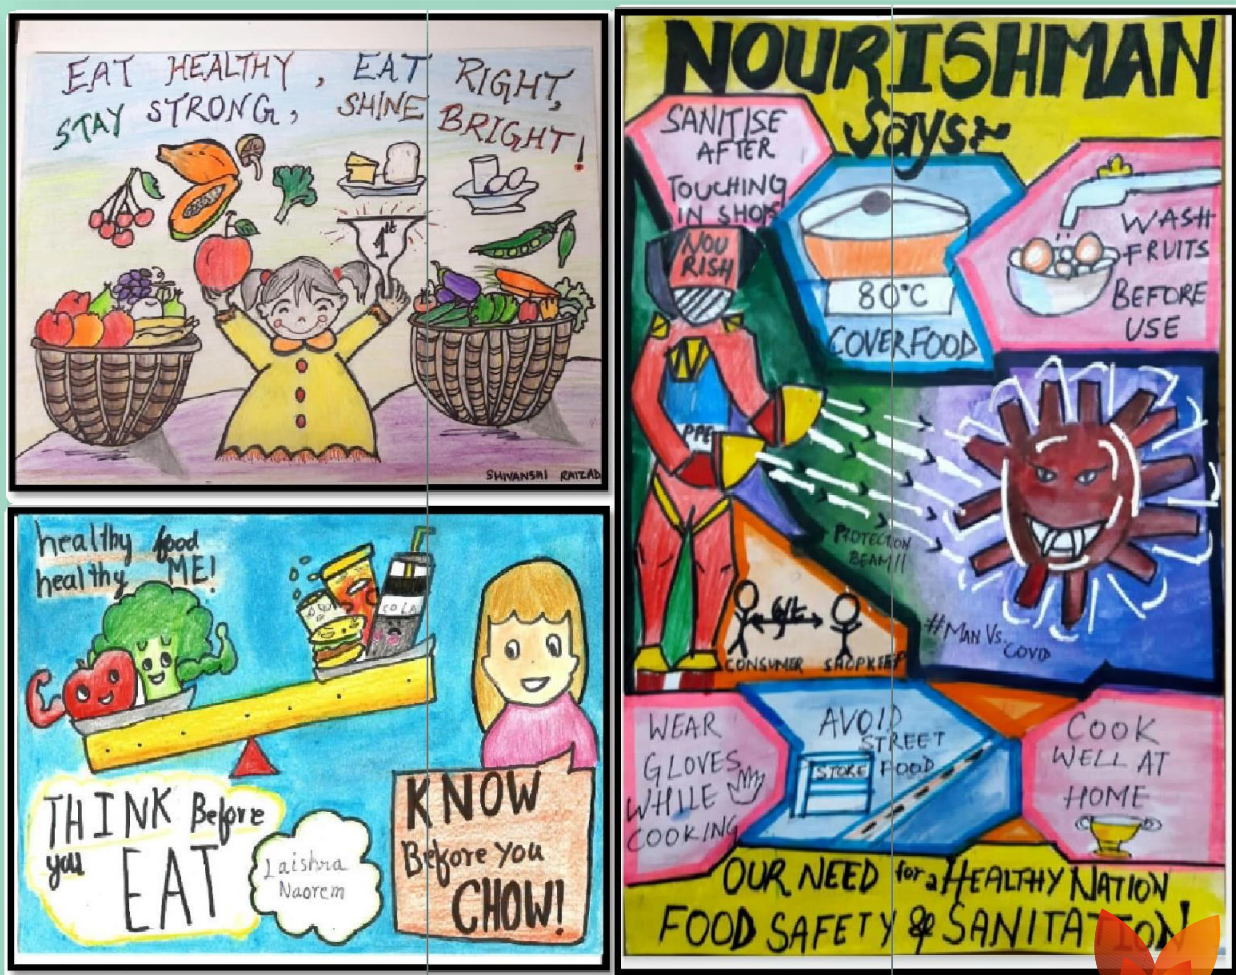 EAT HEALTHY, EAT RIGHT,
STAY STRONG, SHINE BRIGHT!
1st
SHIVANSHI RAIZAD
healthy food
healthy ME!
COLA
THINK Before
you EAT
Laishna
Naorem
KNOW
Before you
CHOW!
NOURISHMAN
Says~
SANITISE
AFTER
TOUCHING
IN SHOP
NOU
RISH
80°C
COVER FOOD
WASH
FRUITS
BEFORE
USE
PPE
PROTECTION
BEAM!!
#MAN VS. COVD
6ft
CONSUMER SHOPKEEP
WEAR
GLOVES
WHILE
COOKING
AVOID
STREET
FOOD
STORE
COOK
WELL AT
HOME
OUR NEED for a HEALTHY NATION
FOOD SAFETY & SANITATION!